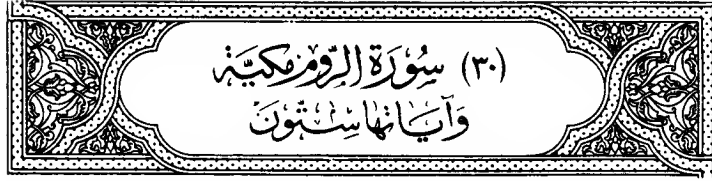 (٣٠) سُورَة الرّوم مكيّة
وَآيَاتها سِتّونَ